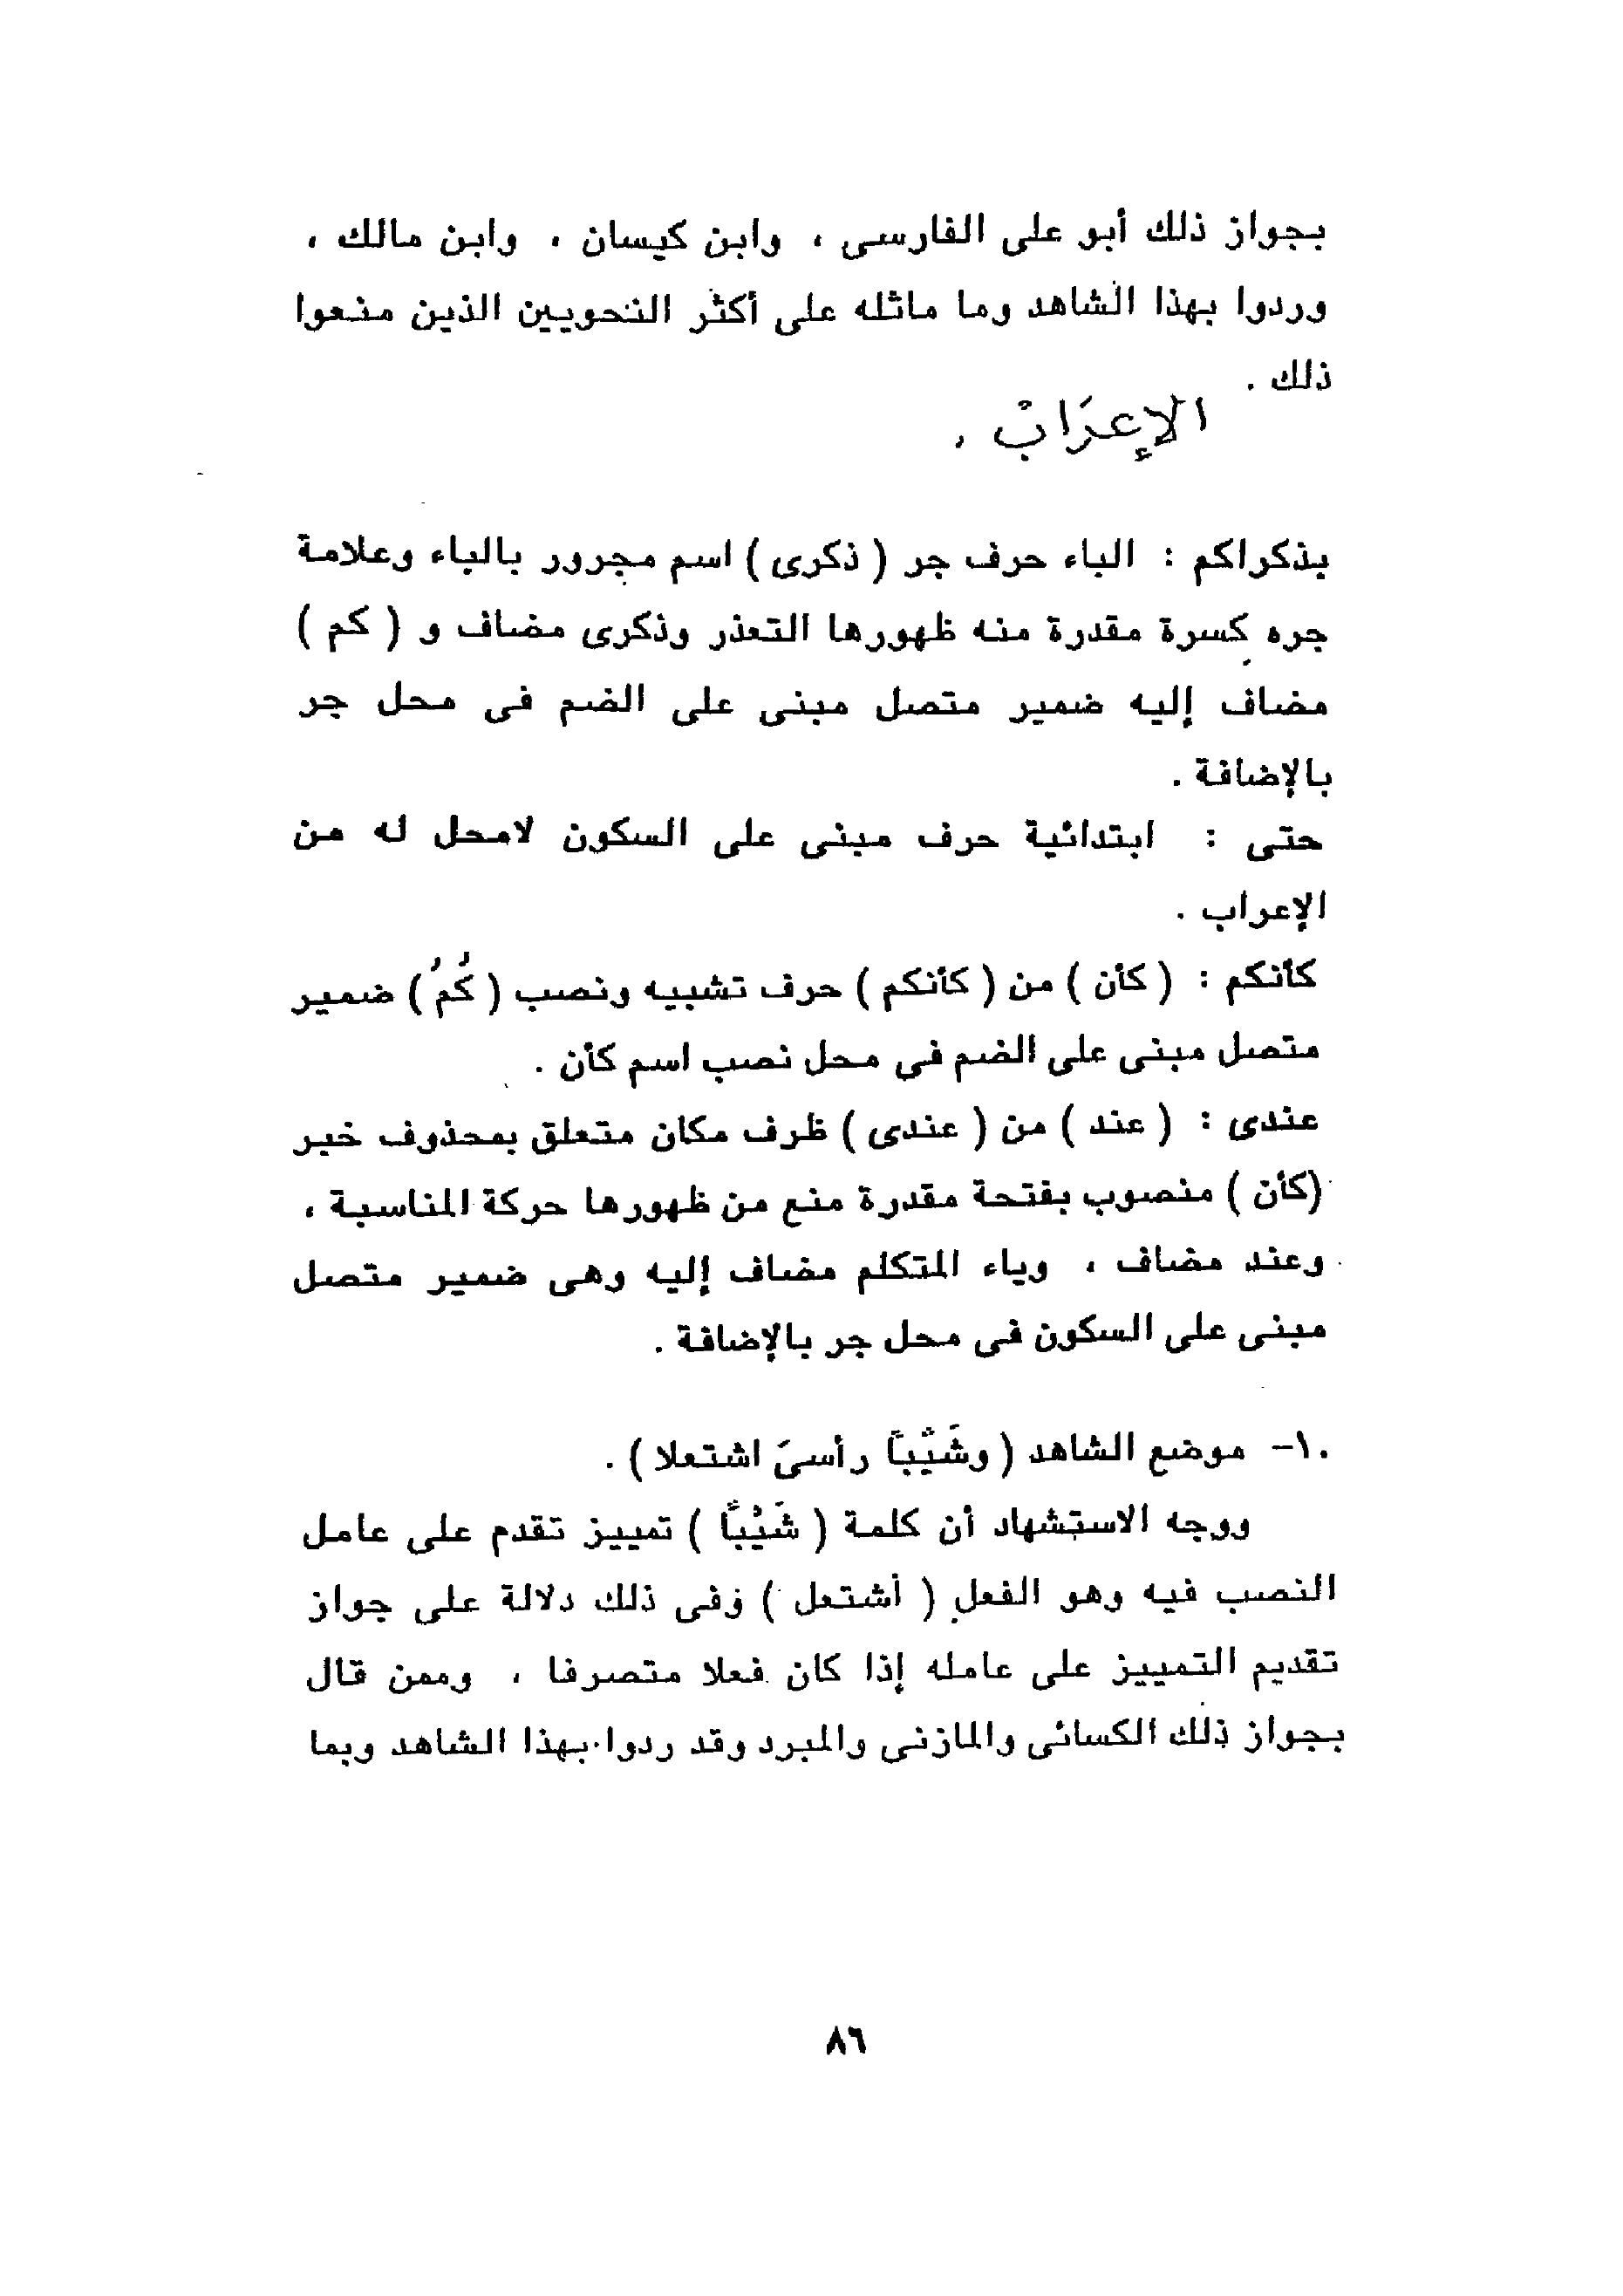 بجواز ذلك أبو على الفارسى ، وابن كيسان ، وابن مالك ،
وردوا بهذا الشاهد وما ماثله على أكثر النحويين الذين منعوا
ذلك .
الإعرَابْ ،
بذكراكم : الباء حرف جر ( ذكرى ) اسم مجرور بالباء وعلامة
جره كسرة مقدرة منه ظهورها التعذر وذكرى مضاف و ( كم )
مضاف إليه ضمير متصل مبنى على الضم فى محل جر
بالإضافة .
حتى : ابتدائية حرف مبنى على السكون لامحل له من
الإعراب .
كأنكم : ( كأن ) من ( كأنكم ) حرف تشبيه ونصب ( كُمُ ) ضمير
متصل مبنى على الضم فى محل نصب اسم كأن .
عندى : ( عند ) من ( عندى ) ظرف مكان متعلق بمحذوف خبر
(كأن ) منصوب بفتحة مقدرة منع من ظهورها حركة المناسبة ،
وعند مضاف ، وياء المتكلم مضاف إليه وهى ضمير متصل
مبنى على السكون فى محل جر بالإضافة .
١٠- موضع الشاهد ( وشَيْباً رأسىَ اشتعلا ) .
ووجه الاستشهاد أن كلمة ( شَيْباً ) تمييز تقدم على عامل
النصب فيه وهو الفعل ( أشتعل ) وفى ذلك دلالة على جواز
تقديم التمييز على عامله إذا كان فعلا متصرفا ، وممن قال
بجواز ذلك الكسائى والمازنى والمبرد وقد ردوا بهذا الشاهد وبما
٨٦